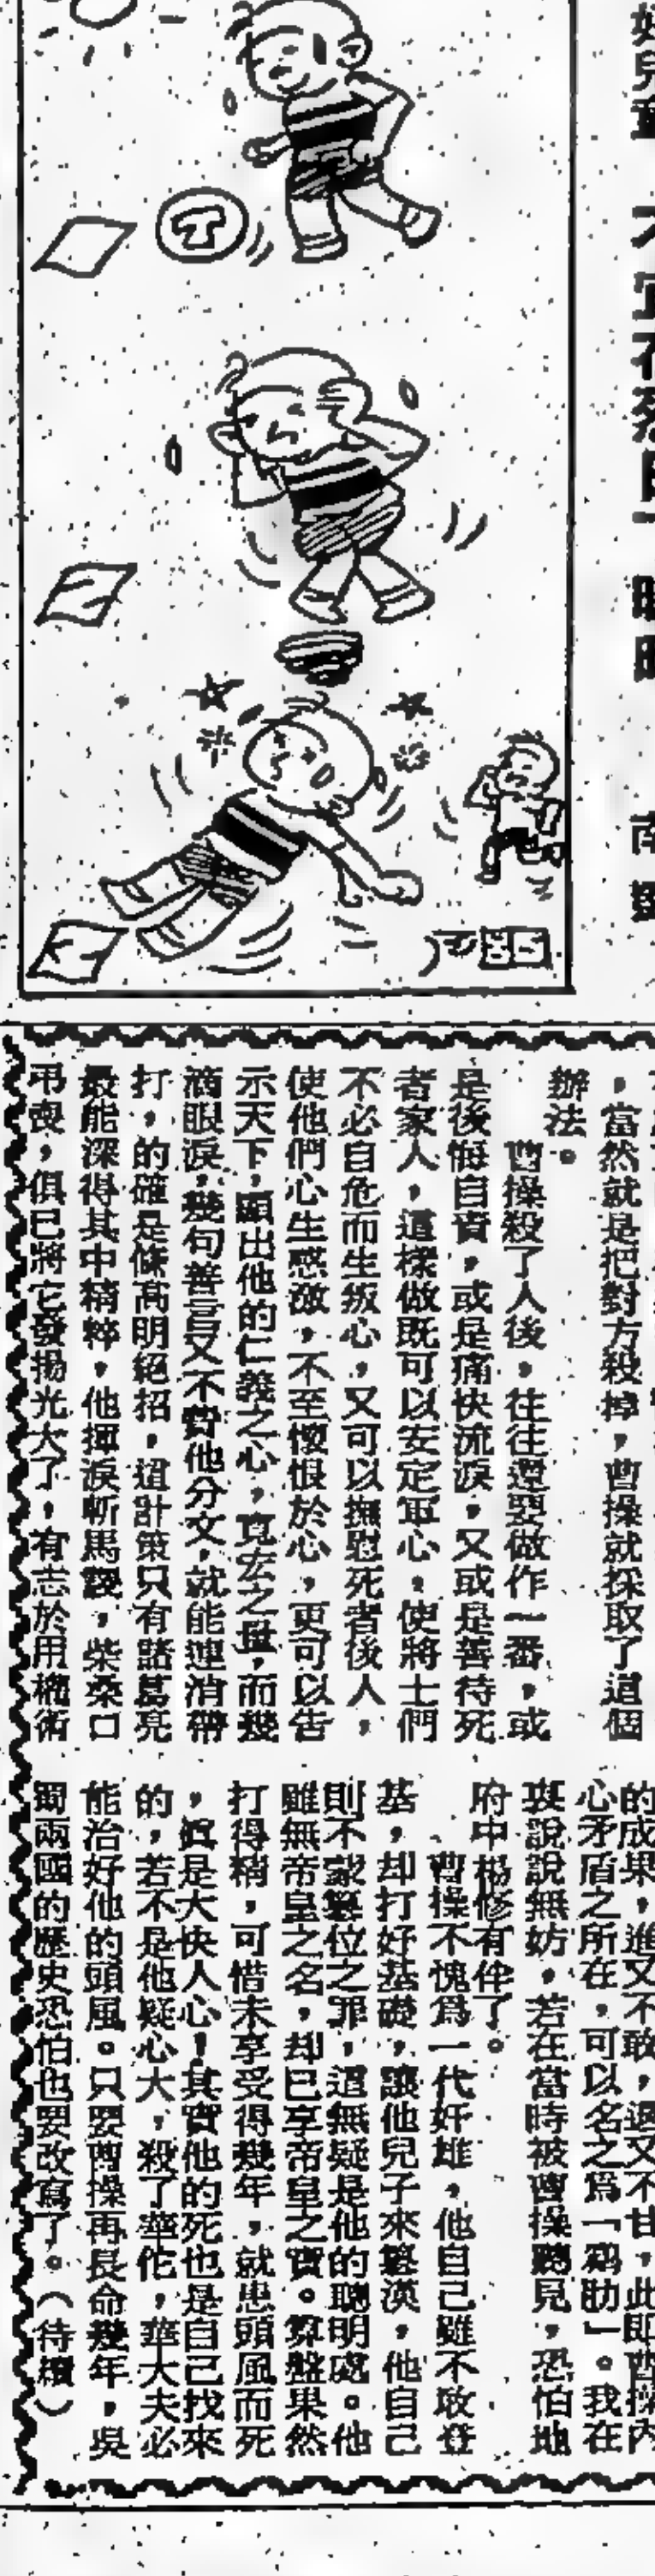 好兒童
南
，當然就是把對方殺掉，曹操就採取了這個
辦法。
曹操殺了人後，往往還要做作一番，或
是後悔自責，或是痛快流淚，又或是善待死
者家人，這樣做既可以安定軍心，使將士們
不必自危而生叛心，又可以撫慰死者後人，
使他們心生感激，不至懷恨於心，更可以告
示天下，顯出他的仁義之心，寬宏之量，而幾
滴眼淚，幾句善言又不費他分文，就能連消帶
打，的確是條高明絕招，這計策只有諸葛亮
最能深得其中精粹，他揮淚斬馬謖，柴桑口
弔喪，俱已將它發揚光大了，有志於用權術
的成果，進又不敢，退又不甘，此即曹操內
心矛盾之所在，可以名之爲「鷄肋」。我在
裏說說無妨，若在當時被曹操聽見，恐怕地
府中楊修有伴了。
曹操不愧爲一代奸雄，他自己雖不敢登
基，却打好基礎，讓他兒子來篡漢，他自己
則不蒙篡位之罪，這無疑是他的聰明處。他
雖無帝皇之名，却已享帝皇之實。算盤果然
打得精，可惜未享受得幾年，就患頭風而死
，眞是大快人心！其實他的死也是自己找來
的，若不是他疑心大，殺了華佗，華大夫必
能治好他的頭風。只要曹操再長命幾年，吳
蜀兩國的歷史恐怕也要改寫了。（待續）